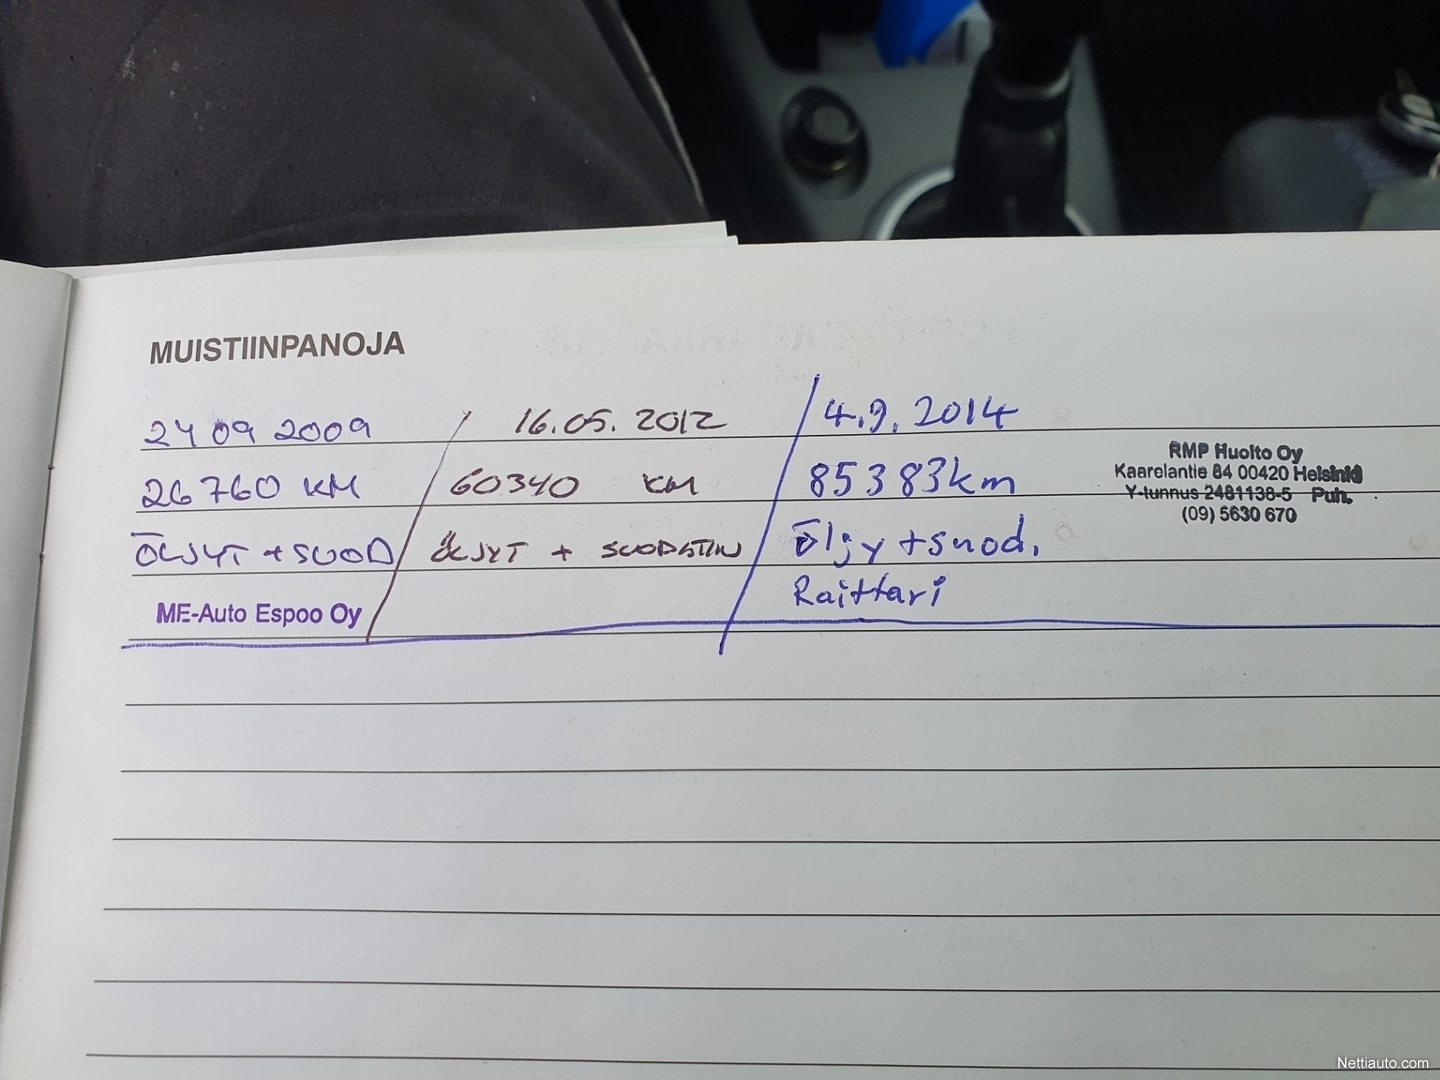 MUISTIINPANOJA
24 09 2009
26760 KM
ÖLJYT + SUOD
ME-Auto Espoo Oy
16.05. 2012
60340 KM
ÖLJYT + SUODATIN
4.9. 2014
85383km
Öljy + suod.
Raittari
RMP Huolto Oy
Kaarelantie 84 00420 Helsinki
Y-tunnus 2481138-5 Puh.
(09) 5630 670
Nettiauto.com